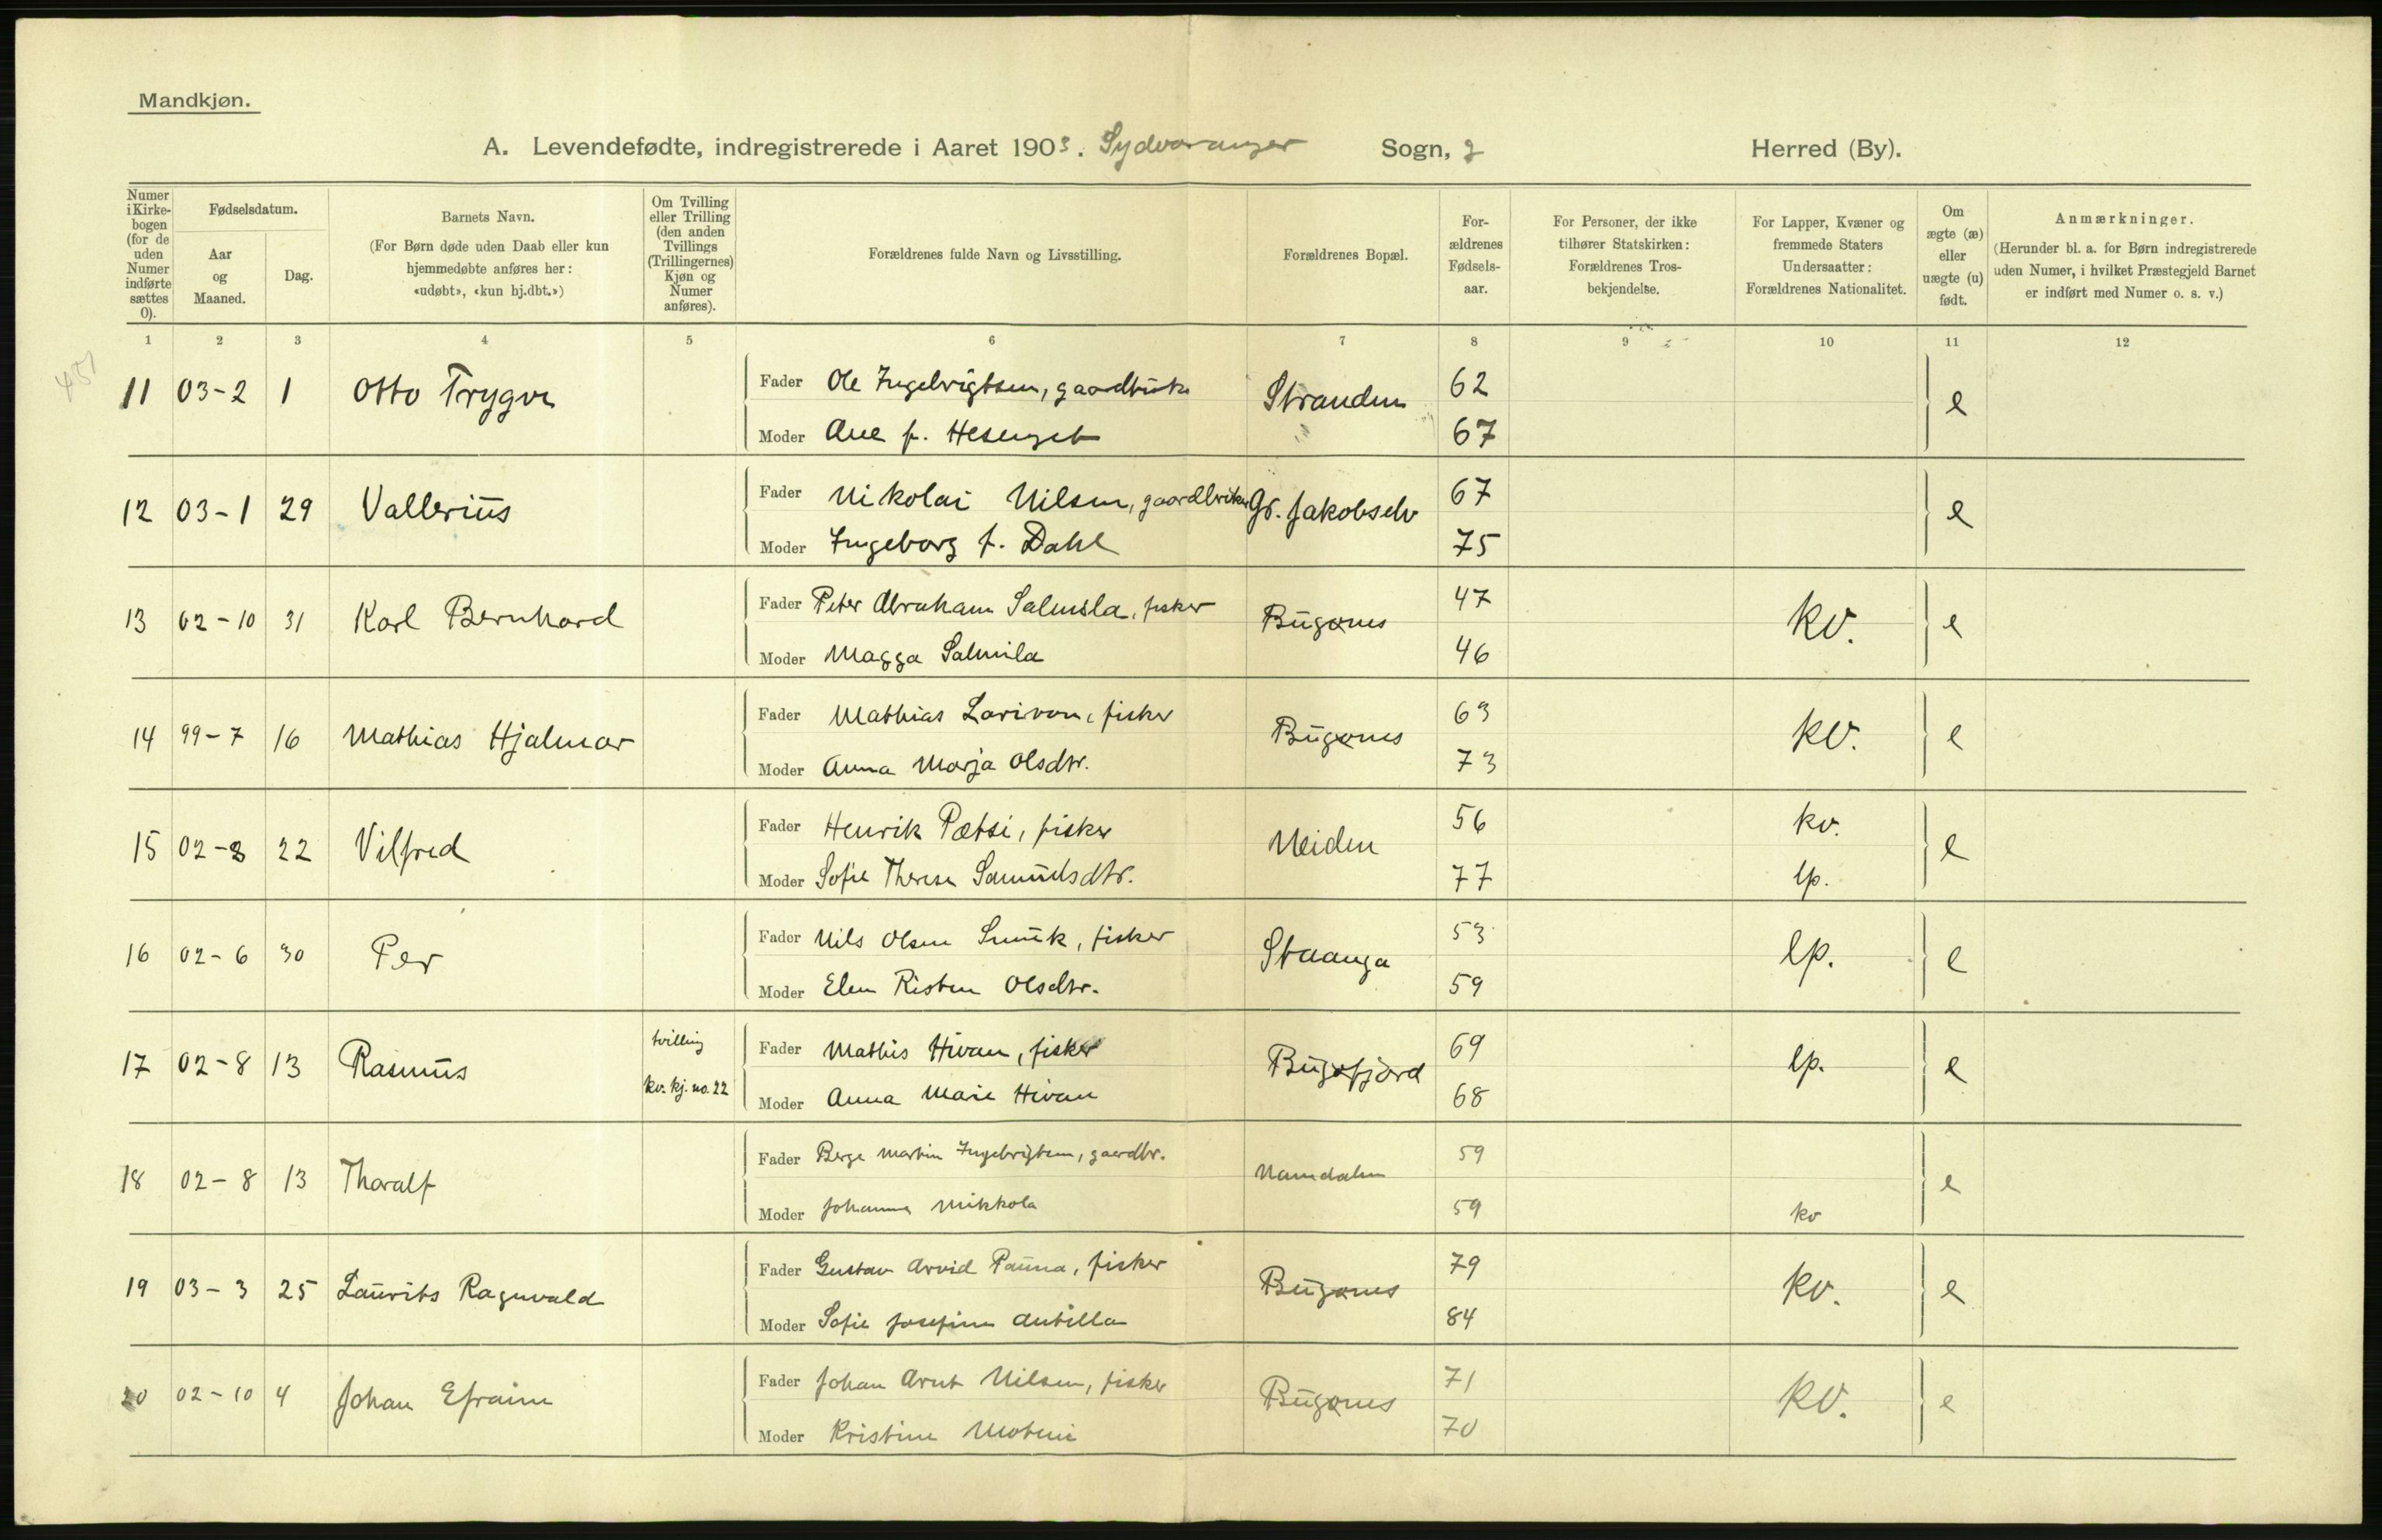 Mandkjøn.
A. Levendefødte, indregistrerede i Aaret 1903. Sydvaranger Sogn, Herred (By).
Numer i Kirkebogen (for de uden Numer indførte sættes 0).
Fødselsdatum.
Aar og Maaned.
Dag.
Barnets Navn.
(For Børn døde uden Daab eller kun hjemmedøbte anføres her: «udøbt», «kun hj.dbt.»)
Om Tvilling eller Trilling (den anden Tvillings (Trillingernes) Kjøn og Numer anføres).
Forældrenes fulde Navn og Livsstilling.
Forældrenes Bopæl.
Forældrenes Fødselsaar.
For Personer, der ikke tilhører Statskirken: Forældrenes Trosbekjendelse.
For Lapper, Kvæner og fremmede Staters Undersaatter: Forældrenes Nationalitet.
Om ægte (æ) eller uægte (u) født.
Anmærkninger.
(Herunder bl. a. for Børn indregistrerede uden Numer, i hvilket Præstegjeld Barnet er indført med Numer o. s. v.)
1 2 3 4 5 6 7 8 9 10 11 12
451
11 03-2 1 Otto Trygve Fader Ole Ingebrigtsen, gaardbruker Stranden 62 e
Moder Ane f. Hesenget 67
12 03-1 29 Vallerius Fader Nikolai Nilsen, gaardbruker Gr. Jakobselv 67 e
Moder Ingeborg f. Dahl 75
13 02-10 31 Karl Bernhard Fader Peter Abraham Salmila, fisker Bugønes 47 kv. e
Moder Magga Salmila 46
14 99-7 16 Mathias Hjalmar Fader Mathias Larivon, fisker Bugønes 63 kv. e
Moder Anna Marja Olsdtr. 73
15 02-3 22 Vilfred Fader Henrik Pætsi, fisker Neiden 56 kv. e
Moder Sofie Therese Samuelsdtr. 77 lp.
16 02-6 30 Per Fader Nils Olsen Smuk, fisker Staanga 53 lp. e
Moder Elen Risten Olsdtr. 59
17 02-8 13 Rasmus tvilling kv. kj. no. 22 Fader Mathis Hivan, fisker Bugøfjord 69 lp. e
Moder Anna Marie Hivan 68
18 02-8 13 Tharalf Fader Berge Martin Ingebrigtsen, gaardbr. Namdalen 59 e
Moder Johanna Mikkola 59 kv
19 03-3 25 Laurits Ragnvald Fader Gustav Arvid Pauna, fisker Bugønes 79 kv. e
Moder Sofie Josefine Antilla 84
20 02-10 4 Johan Efraim Fader Johan Arnt Nilsen, fisker Bugønes 71 kv. e
Moder Kristine Moteni 70